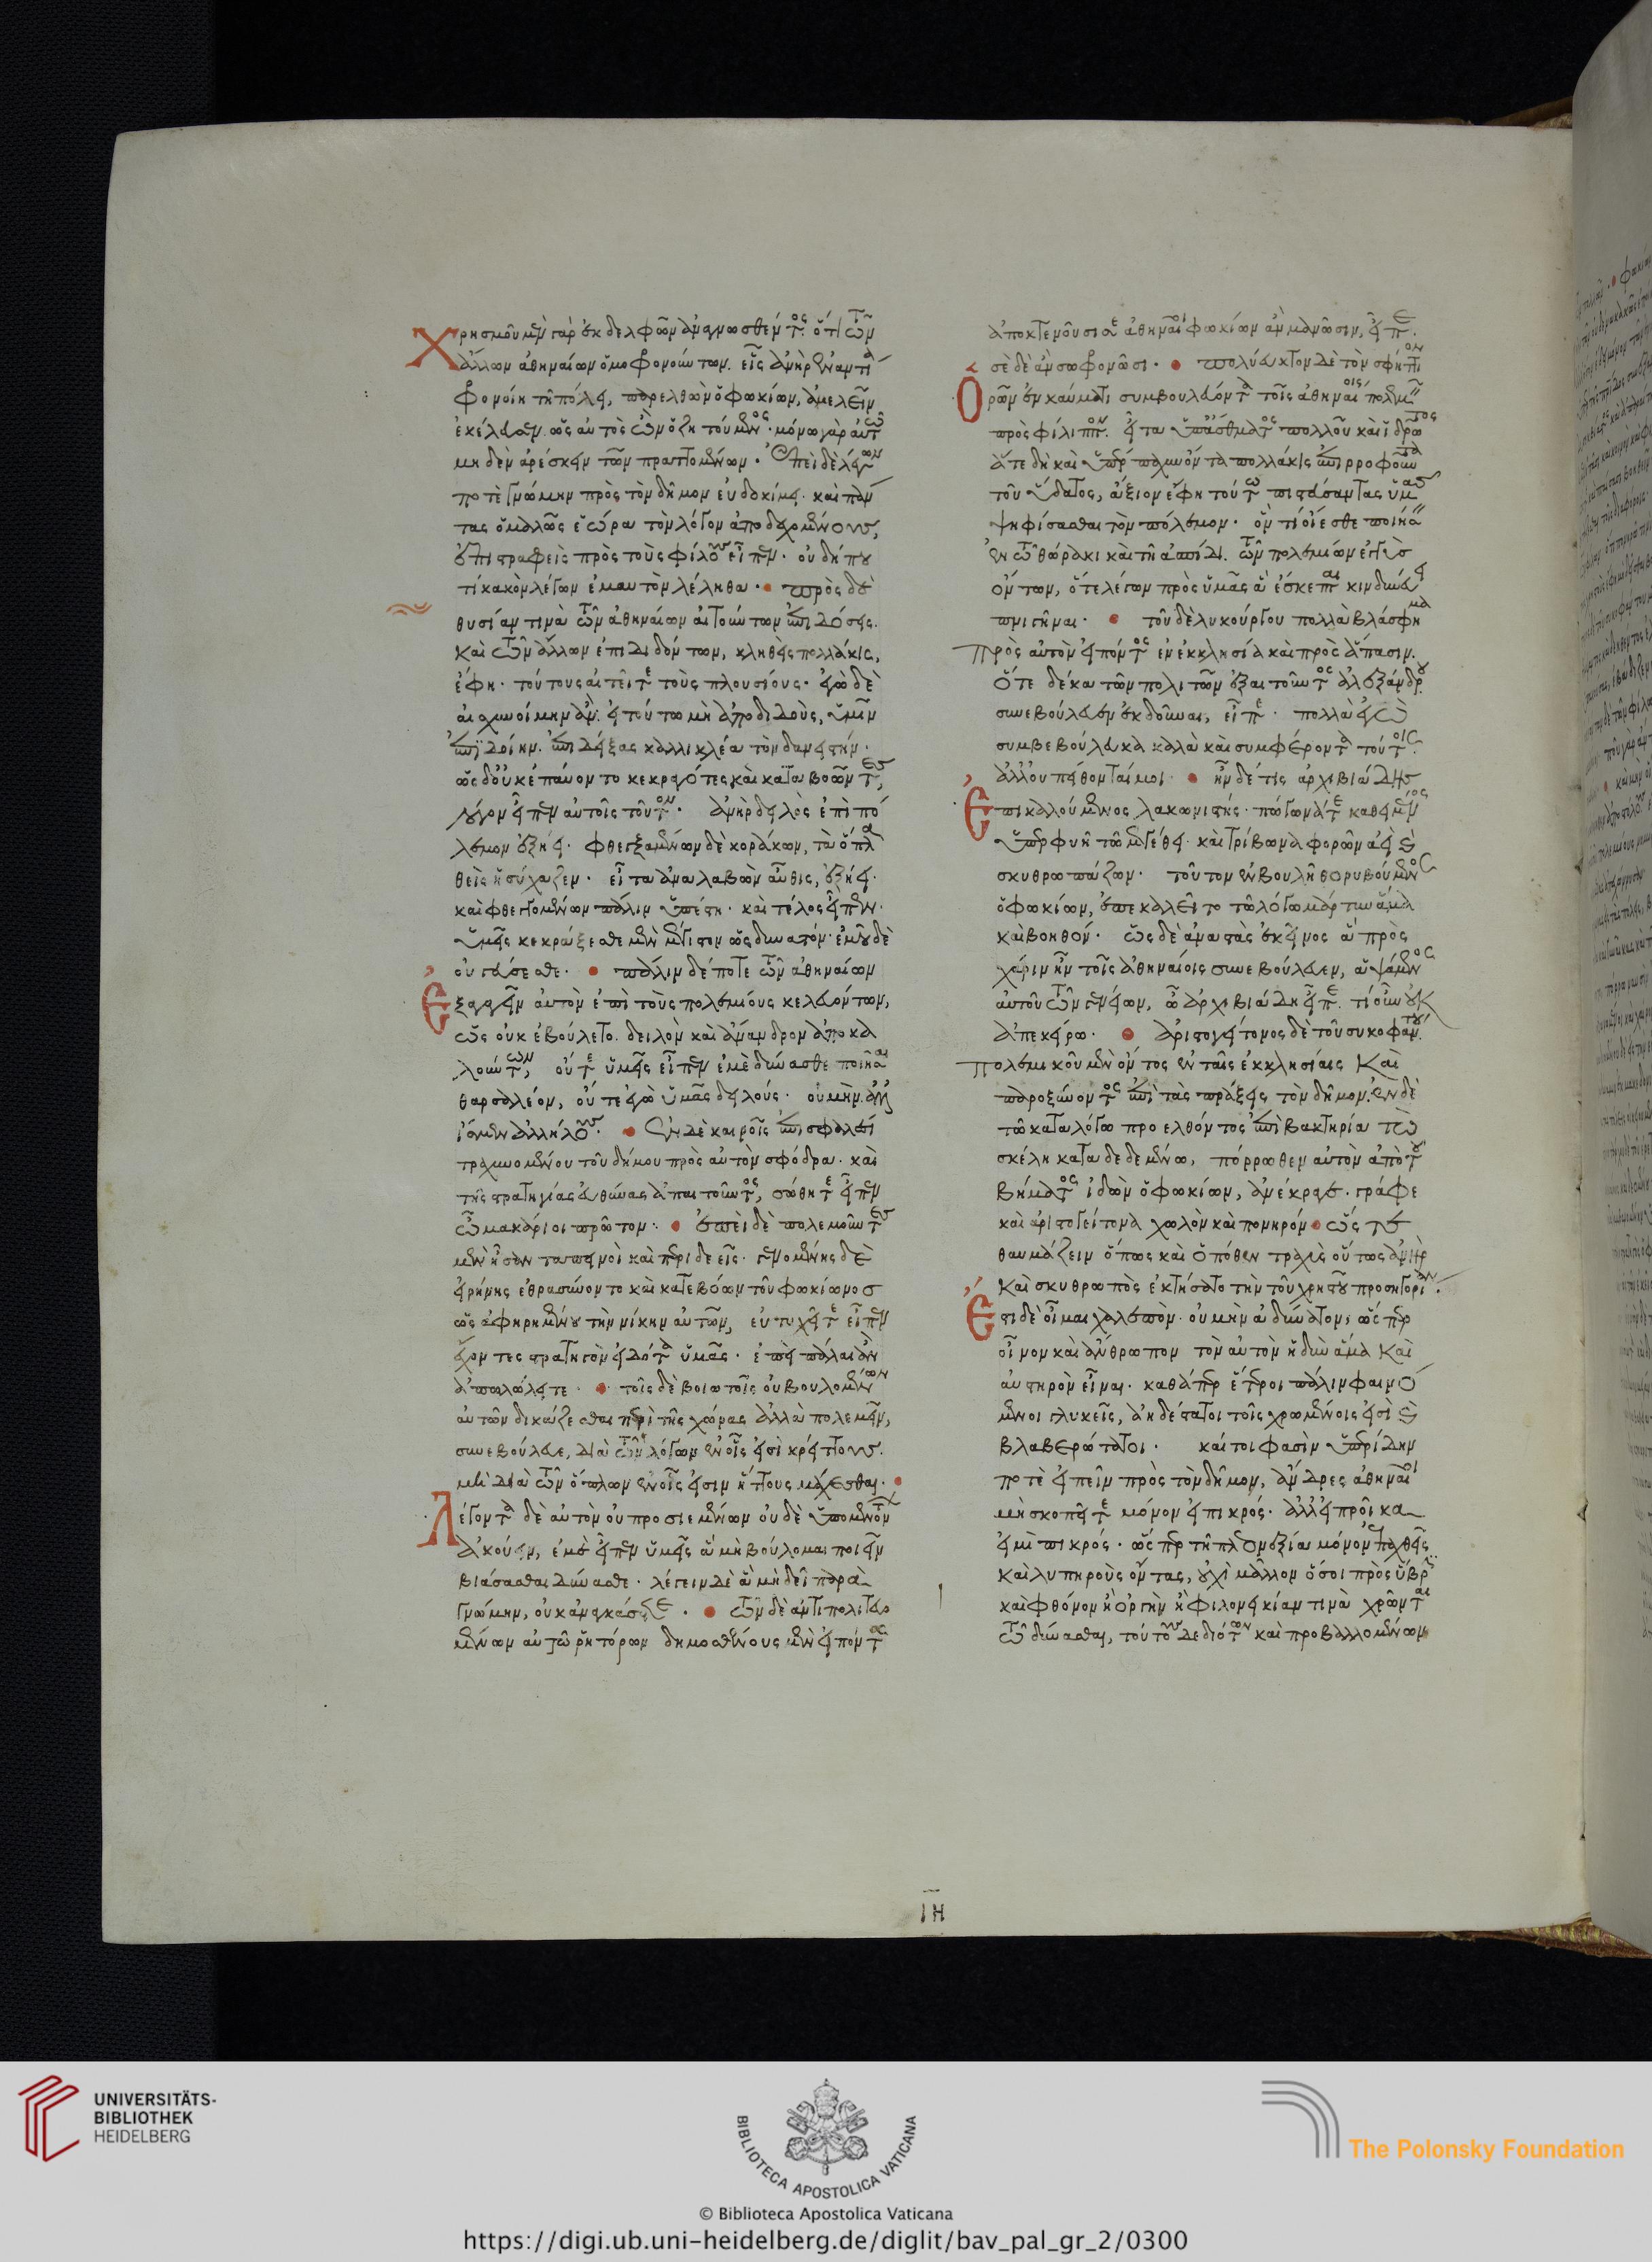 Χρησμοῦ μὲν γὰρ ἐκ δελφῶν ἀναγνωσθέντος. ὅτι τῶν
ἄλλων ἀθηναίων ὁμοφρονούντων. εἷς ἀνὴρ ἐναντία
φρονοίη τῇ πόλει, παρελθὼν ὁ φωκίων, ἀμελεῖν
ἐκέλευσεν. ὡς αὐτὸς ὢν ὁ ζητούμενος. μόνω γὰρ αὐτῶ
μηδὲν ἀρέσκειν τῶν πραττομένων. Ἐπεὶ δὲ λέγων
ποτὲ γνώμην πρὸς τὸν δῆμον εὐδοκίμει. καὶ πάν
τας ὁμαλῶς ἑώρα τὸν λόγον ἀποδεχομένους,
ἐπιστραφεὶς πρὸς τοὺς φίλους εἶπεν. οὐ δή που
τί κακὸν λέγων ἐμαυτὸν λέληθα. πρὸς δὲ
θυσίαν τινὰ τῶν ἀθηναίων αἰτούντων ἐπιδόσεις.
καὶ τῶν ἄλλων ἐπιδιδόντων, κληθεὶς πολλάκις,
ἔφη. τούτους αἰτεῖτε τοὺς πλουσίους. ἐγὼ δὲ
αἰσχυνοίμην ἄν. εἰ τούτω μὴ ἀποδιδοὺς, ὑμῖν
ἐπιδοίην. ἐπιδείξας καλλικλέα τὸν δανειστήν.
ὡς δ' οὐκ ἐπαύοντο κεκραγότες καὶ καταβοῶντες,
λόγον εἶπεν αὐτοῖς τοῦτον. ἀνὴρ δειλὸς ἐπὶ πό
λεμον ἐξήει. φθεγξαμένων δὲ κοράκων, τὰ ὅπλα
θεὶς ἡσύχαζεν. εἶτα ἀναλαβὼν αὖθις, ἐξήει.
καὶ φθεγγομένων πάλιν ὑπέστη. καὶ τέλος εἶπεν.
ὑμεῖς κεκράξεσθε μὲν μέγιστον ὡς δυνατόν. ἐμοῦ δὲ
οὐ γεύσεσθε. πάλιν δέ ποτε τῶν ἀθηναίων
Ἐξάγειν αὐτὸν ἐπὶ τοὺς πολεμίους κελευόντων,
ὡς οὐκ ἐβούλετο. δειλὸν καὶ ἄνανδρον ἀποκα
λούντων, οὔτε ὑμεῖς εἶπεν ἐμὲ δύνασθε ποιῆσαι
θαρσαλέον, οὔτε ἐγὼ ὑμᾶς δειλούς. οὐ μὴν ἀγνο
οῦμεν ἀλλήλους. Ἐν δὲ καιροῖς ἐπισφαλέσι
τραχυνομένου τοῦ δήμου πρὸς αὐτὸν σφόδρα. καὶ
τῆς στρατηγίας εὐθύνας ἀπαιτοῦντος, σώθητε εἶπεν
ὦ μακάριοι πρῶτον. ἐπεὶ δὲ πολεμοῦντες
μὲν ἦσαν ταπεινοὶ καὶ περιδεεῖς. γενομένης δὲ
εἰρήνης ἐθρασύνοντο καὶ κατεβόων τοῦ φωκίωνος
ὡς ἀφῃρημένου τὴν νίκην αὐτῶν, εὐτυχεῖτε εἶπεν
ἔχοντες στρατηγὸν εἰδότα ὑμᾶς. ἐπεὶ πάλαι ἂν
ἀπολώλειτε. τοῖς δὲ βοιωτοῖς οὐ βουλομένων
αὐτῶν δικάζεσθαι περὶ τῆς χώρας ἀλλὰ πολεμεῖν,
συνεβούλευε, διὰ τῶν λόγων ἐν οἷς εἰσὶ κρείττους.
μὴ διὰ τῶν ὅπλων ἐν οἷς εἰσιν ἥττους μάχεσθαι.
Λέγοντα δὲ αὐτὸν οὐ προσιεμένων οὐδὲ ὑπομενόντων
ἀκούειν, ἐμὲ εἶπεν ὑμεῖς ἃ μὴ βούλομαι ποιεῖν
βιάσασθαι δύνασθε. λέγειν δὲ ἃ μὴ δεῖ παρὰ
γνώμην, οὐκ ἀναγκάσετε. τῶν δὲ ἀντιπολιτευο
μένων αὐτῶ ῥητόρων δημοσθένους μὲν εἰπόντος
ἀποκτενοῦσι σε ἀθηναῖοι φωκίων ἂν μανῶσιν, εἶπε.
σὲ δὲ ἂν σωφρονῶσι. πολύευκτον δὲ τὸν σφήττιον
Ὁρῶν ἐν καύματι συμβουλεύοντα τοῖς ἀθηναίοις πολεμεῖν
πρὸς φίλιππον. εἶτα ὑπ' ἄσθματος πολλοῦ καὶ ἱδρῶτος
ἅτε δὴ καὶ ὑπέρπαχυν ὄντα πολλάκις ἐπιρροφοῦντα
τοῦ ὕδατος, ἄξιον ἔφη τούτω πιστεύσαντας ὑμᾶς
ψηφίσασθαι τὸν πόλεμον. ὃν τί οἴεσθε ποιήσειν
ἐν τῶ θώρακι καὶ τῇ ἀσπίδι. τῶν πολεμίων ἐγγὺς
ὄντων, ὅτε λέγων πρὸς ὑμᾶς ἃ ἔσκεπται κινδυνεύει
πνιγῆναι. τοῦ δὲ λυκούργου πολλὰ βλάσφημα
Πρὸς αὐτὸν εἰπόντος ἐν ἐκκλησία καὶ πρὸς ἅπασιν.
Ὅτε δέκα τῶν πολιτῶν ἐξαιτοῦντος ἀλεξάνδρου
συνεβούλευεν ἐκδοῦναι, εἶπε. πολλὰ ἐγὼ
συμβεβούλευκα καλὰ καὶ συμφέροντα τούτοις.
ἀλλ' οὐ πείθονταί μοι. ἦν δέ τις ἀρχιβιάδης
Ἐπικαλούμενος λακωνιστής. πώγωνά τε καθειμένος
ὑπερφυῆ τῶ μεγέθει. καὶ τρίβωνα φορῶν ἀεὶ καὶ
σκυθρωπάζων. τοῦτον ἐν βουλῇ θορυβούμενος
ὁ φωκίων, ἐπεκαλεῖτο τῶ λόγω μάρτυν ἅμα
καὶ βοηθόν. ὡς δὲ ἀναστὰς ἐκεῖνος ἃ πρὸς
χάριν ἦν τοῖς ἀθηναίοις συνεβούλευεν, ἁψάμενος
αὐτοῦ τῶν γενείων, ὦ ἀρχιβιάδη εἶπε. τί οὖν οὐκ
ἀπεκείρω. ἀριστογείτονος δὲ τοῦ συκοφάντου
Πολεμικοῦ μὲν ὄντος ἐν ταῖς ἐκκλησίαις καὶ
παροξύνοντος ἐπὶ τὰς πράξεις τὸν δῆμον. ἐν δὲ
τῶ καταλόγω προελθόντος ἐπὶ βακτηρία τὼ
σκέλη καταδεδεμένω, πόρρωθεν αὐτὸν ἀπὸ τοῦ
βήματος ἰδὼν ὁ φωκίων, ἀνέκραγε. γράφε
καὶ ἀριστογείτονα χωλὸν καὶ πονηρόν. ὥστε
θαυμάζειν ὅπως καὶ ὁπόθεν τραχὺς οὕτως ἀνὴρ
Καὶ σκυθρωπὸς ἐκτήσατο τὴν τοῦ χρηστοῦ προσηγορίαν.
Ἔστι δὲ οἶμαι χαλεπὸν. οὐ μὴν ἀδύνατον, ὥσπερ
οἶνον καὶ ἄνθρωπον τὸν αὐτὸν ἡδὺν ἅμα καὶ
αὐστηρὸν εἶναι. καθάπερ ἕτεροι πάλιν φαινό
μενοι γλυκεῖς, ἀηδέστατοι τοῖς χρωμένοις εἰσὶ καὶ
βλαβερώτατοι. καίτοι φασὶν ὑπερίδην
ποτὲ εἰπεῖν πρὸς τὸν δῆμον, ἄνδρες ἀθηναῖοι
μὴ σκοπεῖτε μόνον εἰ πικρός. ἀλλ' εἰ προῖκα
εἰμὶ πικρός. ὥσπερ τῇ πλεονεξία μόνον ἐπαχθεῖς
καὶ λυπηροὺς ὄντας, οὐχὶ μᾶλλον ὅσοι πρὸς ὕβριν
καὶ φθόνον ἢ ὀργὴν ἢ φιλονεικίαν τινὰ χρῶνται
τῶ δύνασθαι, τούτους δεδιότων καὶ προβαλλομένων
ΙΗ
UNIVERSITÄTS-
BIBLIOTHEK
HEIDELBERG
BIBLIOTECA APOSTOLICA VATICANA
The Polonsky Foundation
© Biblioteca Apostolica Vaticana
https://digi.ub.uni-heidelberg.de/diglit/bav_pal_gr_2/0300